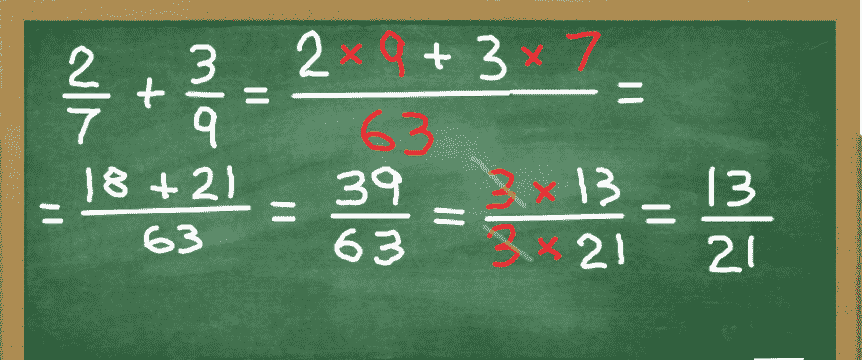 2/7 + 3/9 = (2 × 9 + 3 × 7)/63 =
= (18 + 21)/63 = 39/63 = (3 × 13)/(3 × 21) = 13/21